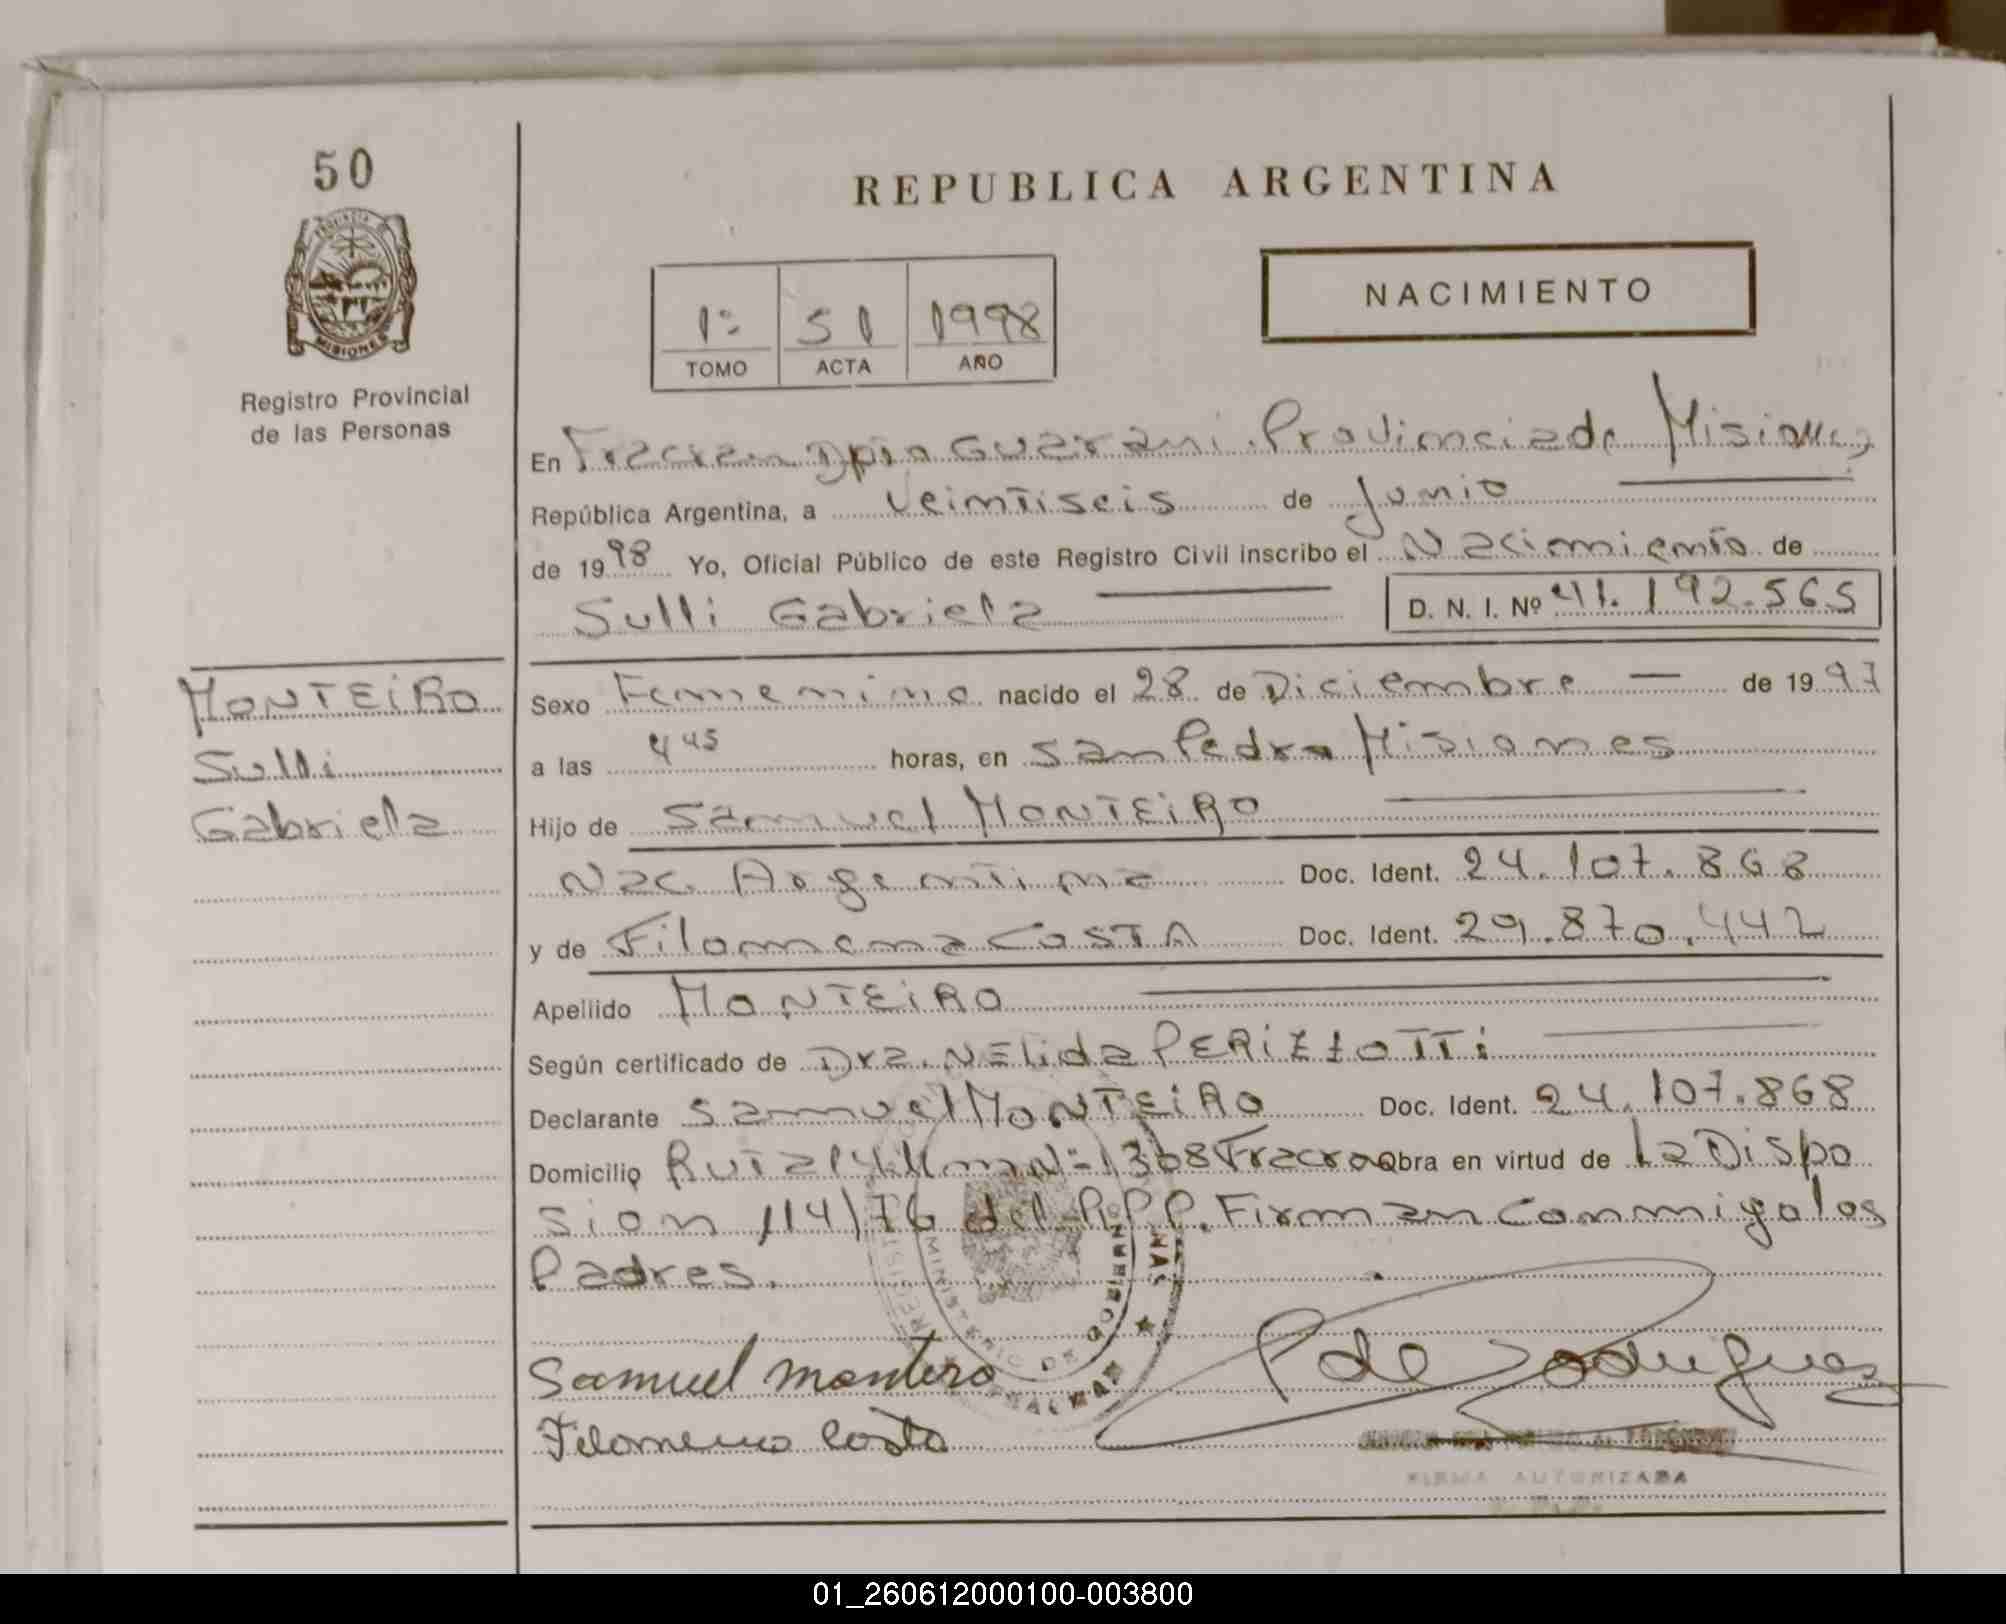 50
PROVINCIA DE
MISIONES
Registro Provincial
de las Personas
REPUBLICA ARGENTINA
NACIMIENTO
1º 51 1998
TOMO ACTA AÑO
En Fracran Dpto Guarani. Provincia de Misiones
República Argentina, a veintiseis de Junio
de 1998 Yo, Oficial Público de este Registro Civil inscribo el Nacimiento de
Sulli Gabriela D. N. I. Nº 41.192.565
MONTEIRO
Sulli
Gabriela
Sexo Femenino nacido el 28 de Diciembre — de 1997
a las 4 45 horas, en San Pedro Misiones
Hijo de Samuel MONTEIRO
Nac. Argentina Doc. Ident. 24.107.868
y de Filomena COSTA Doc. Ident. 29.870.442
Apellido MONTEIRO
Según certificado de Dra. NELida PERIZZOTTi
Declarante Samuel MONTEIRO Doc. Ident. 24.107.868
Domicilio Ruta 14 Km Nº 1308 Fracran Obra en virtud de la Dispo
sion 114/76 del R.P.P. Firman Conmigo los
Padres.
MINISTERIO DE GOBIERNO
Samuel montero
Filomena Costa
P de Rodriguez
FIRMA AUTORIZADA
01_260612000100-003800